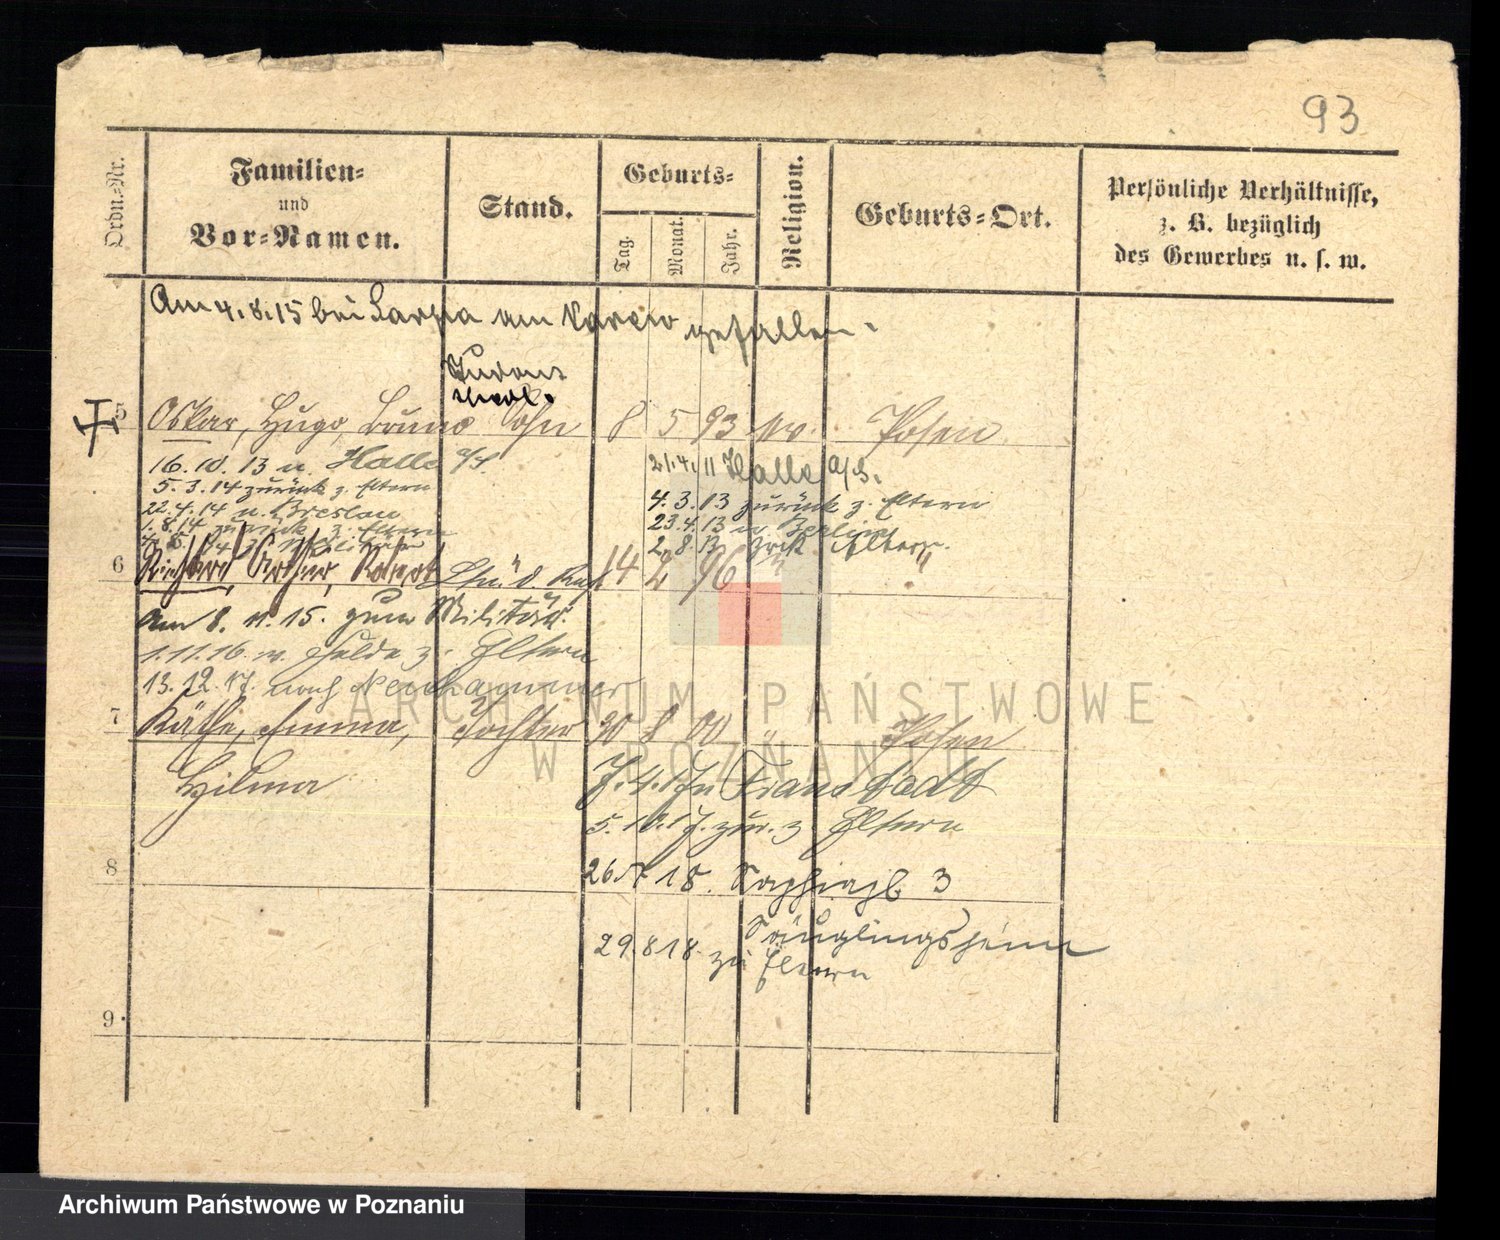 93
Ordn.-Nr.
Familien-
und
Vor-Namen.
Stand.
Geburts-
Tag.
Monat.
Jahr.
Religion.
Geburts-Ort.
Persönliche Verhältnisse,
z. B. bezüglich
des Gewerbes u. s. w.
Am 4.8.15 bei am Narew gefallen.
5 Oskar, Hugo, Bruno Sohn 8 5 93 ev Posen
16.10.13 n. Halle a/S.
5.3.14 zurück z. Eltern
22.4.14 n. Breslau
1.8.14 zurück z. Eltern
21.4.11 Halle a/S.
4.3.13 zurück z. Eltern
23.4.13 n. Berlin
2.8.13 Eltern
6 Richard, Arthur, Robert 14 2 96 "
Am 8.11.15. zum Militär.
1.11.16. z. Eltern
13.12.17. nach Neuhammer
7 Käthe, Emma, Tochter 30 8 00 " Posen
Hilma
n Fraustadt
5.10.17. zur. z Eltern
8
26. 18. 3
Säuglingsheim
29.8.18. zu Eltern
9
ARCHIWUM PAŃSTWOWE
W POZNANIU
Archiwum Państwowe w Poznaniu